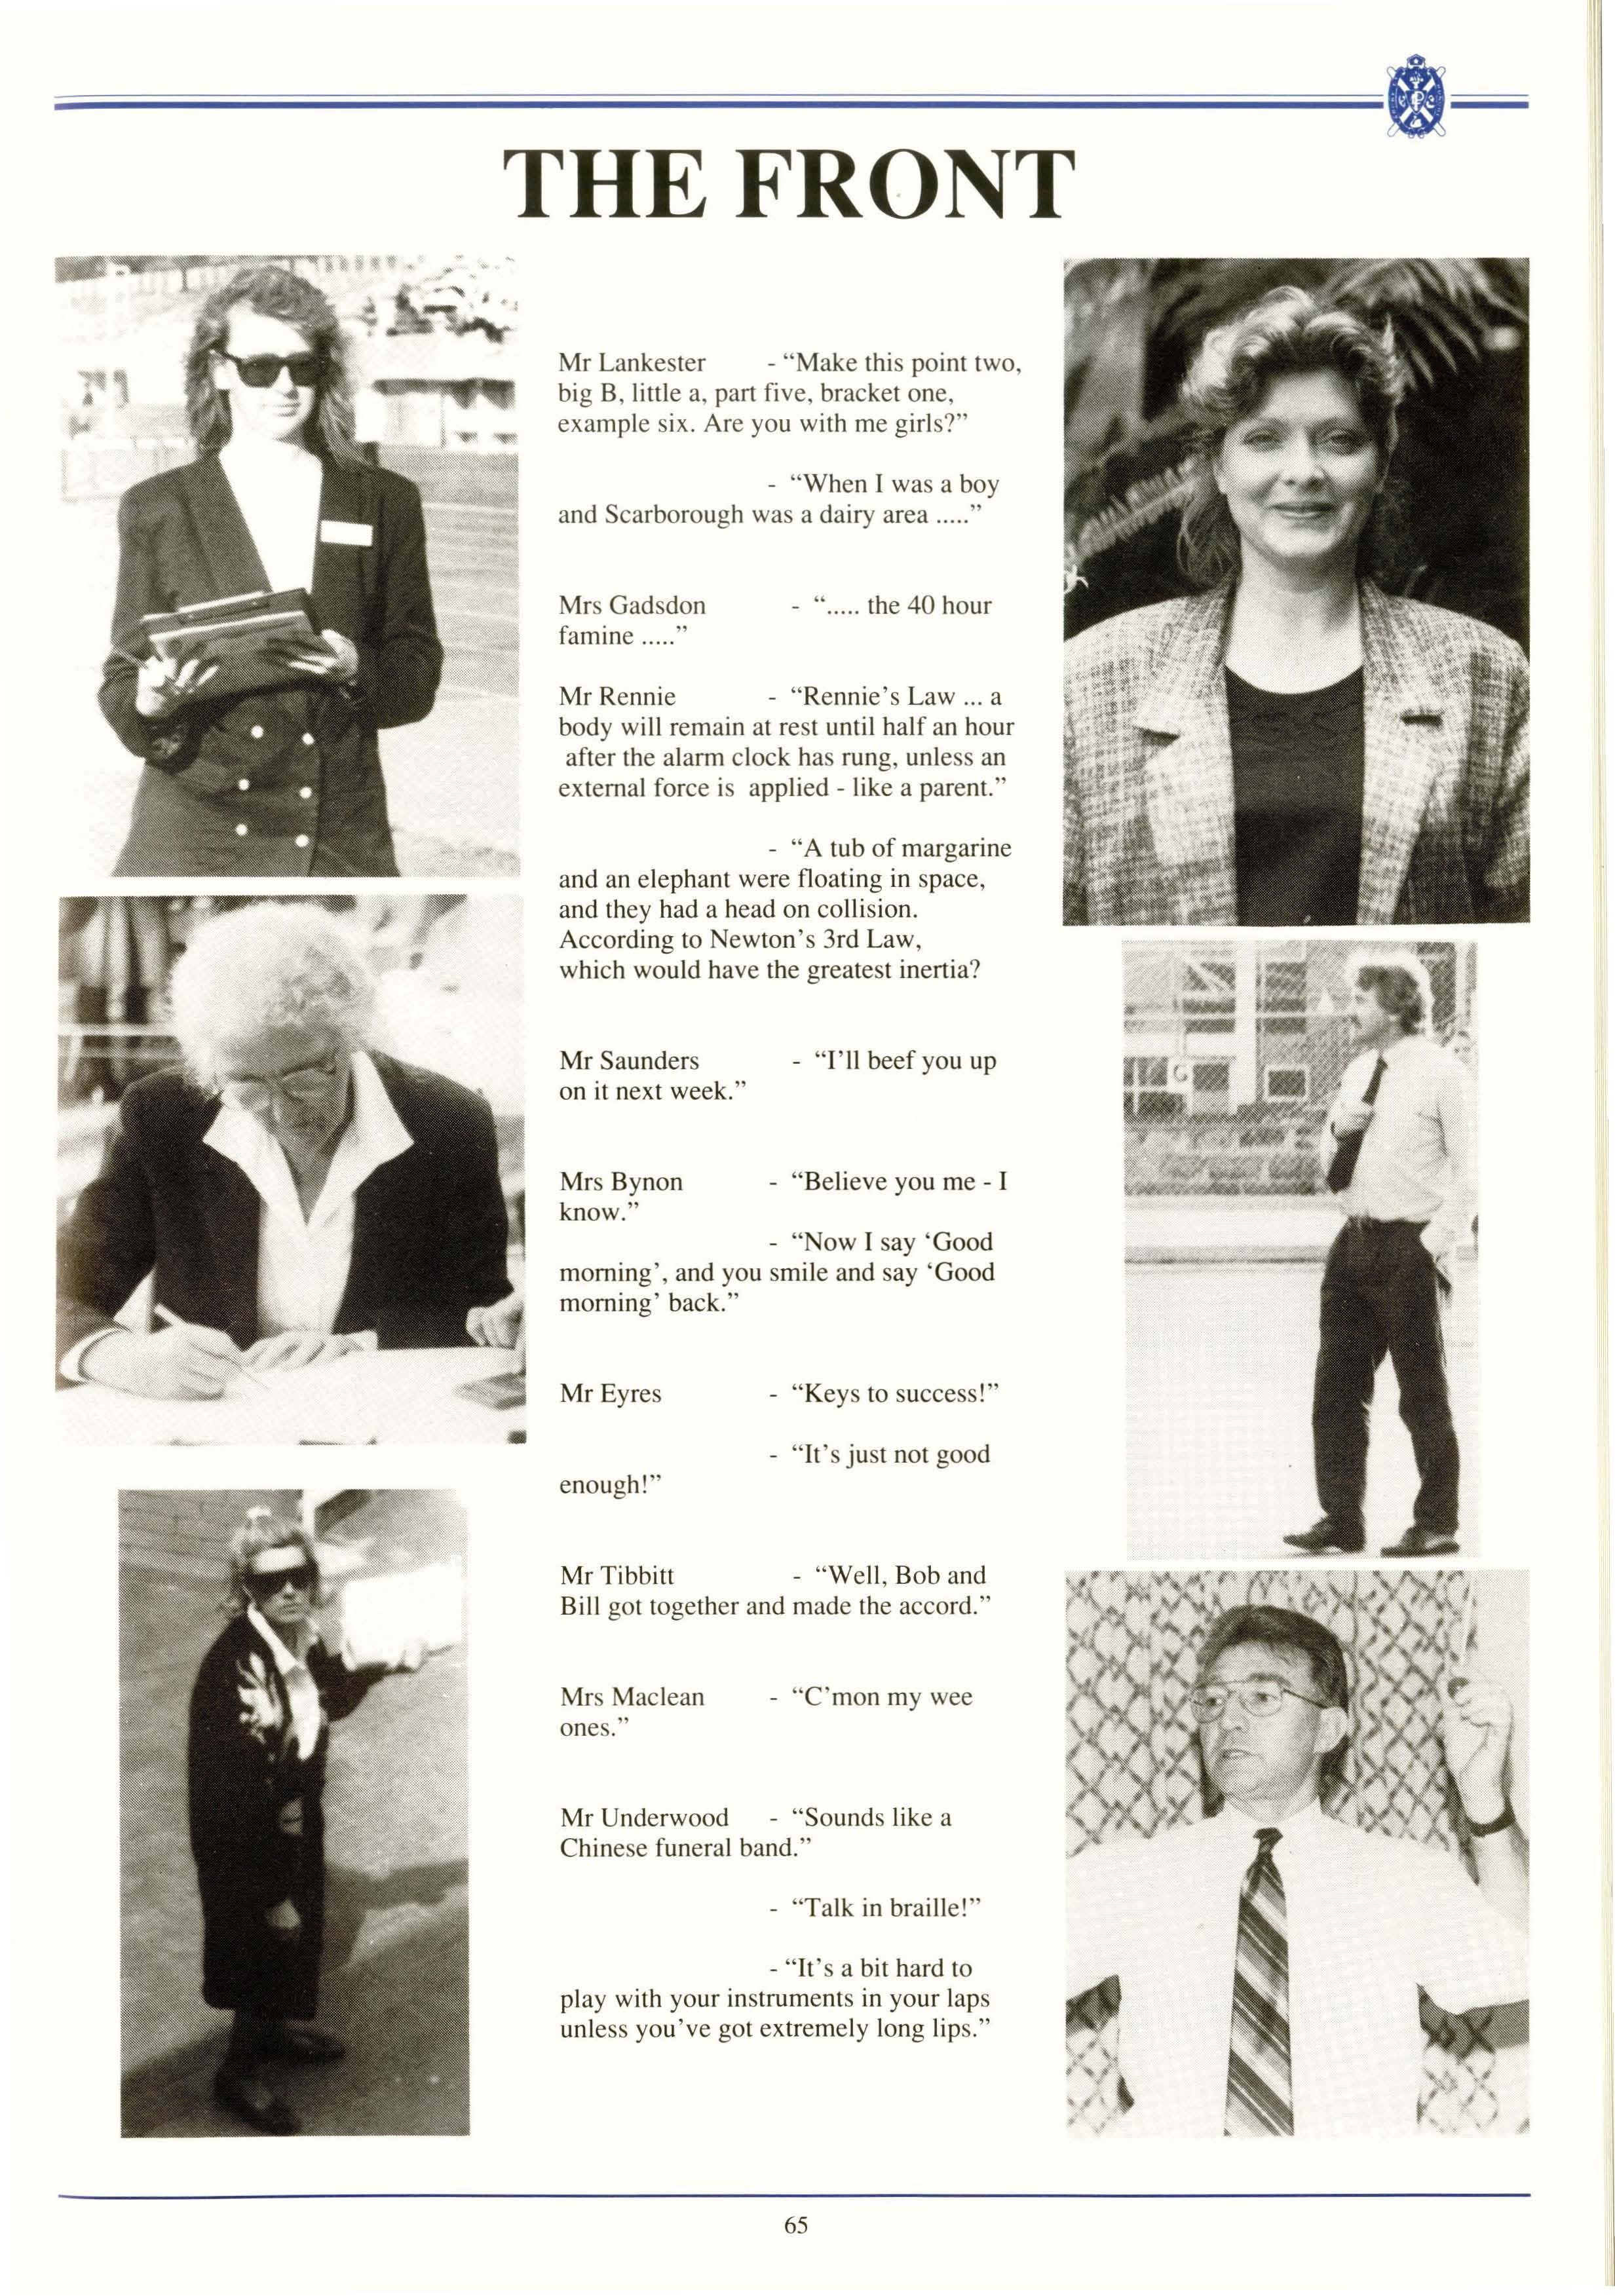 THE FRONT
Mr Lankester - “Make this point two,
big B, little a, part five, bracket one,
example six. Are you with me girls?”
- “When I was a boy
and Scarborough was a dairy area .....”
Mrs Gadsdon - “..... the 40 hour
famine .....”
Mr Rennie - “Rennie’s Law ... a
body will remain at rest until half an hour
after the alarm clock has rung, unless an
external force is applied - like a parent.”
- “A tub of margarine
and an elephant were floating in space,
and they had a head on collision.
According to Newton’s 3rd Law,
which would have the greatest inertia?
Mr Saunders - “I’ll beef you up
on it next week.”
Mrs Bynon - “Believe you me - I
know.”
- “Now I say ‘Good
morning’, and you smile and say ‘Good
morning’ back.”
Mr Eyres - “Keys to success!”
- “It’s just not good
enough!”
Mr Tibbitt - “Well, Bob and
Bill got together and made the accord.”
Mrs Maclean - “C’mon my wee
ones.”
Mr Underwood - “Sounds like a
Chinese funeral band.”
- “Talk in braille!”
- “It’s a bit hard to
play with your instruments in your laps
unless you’ve got extremely long lips.”
65